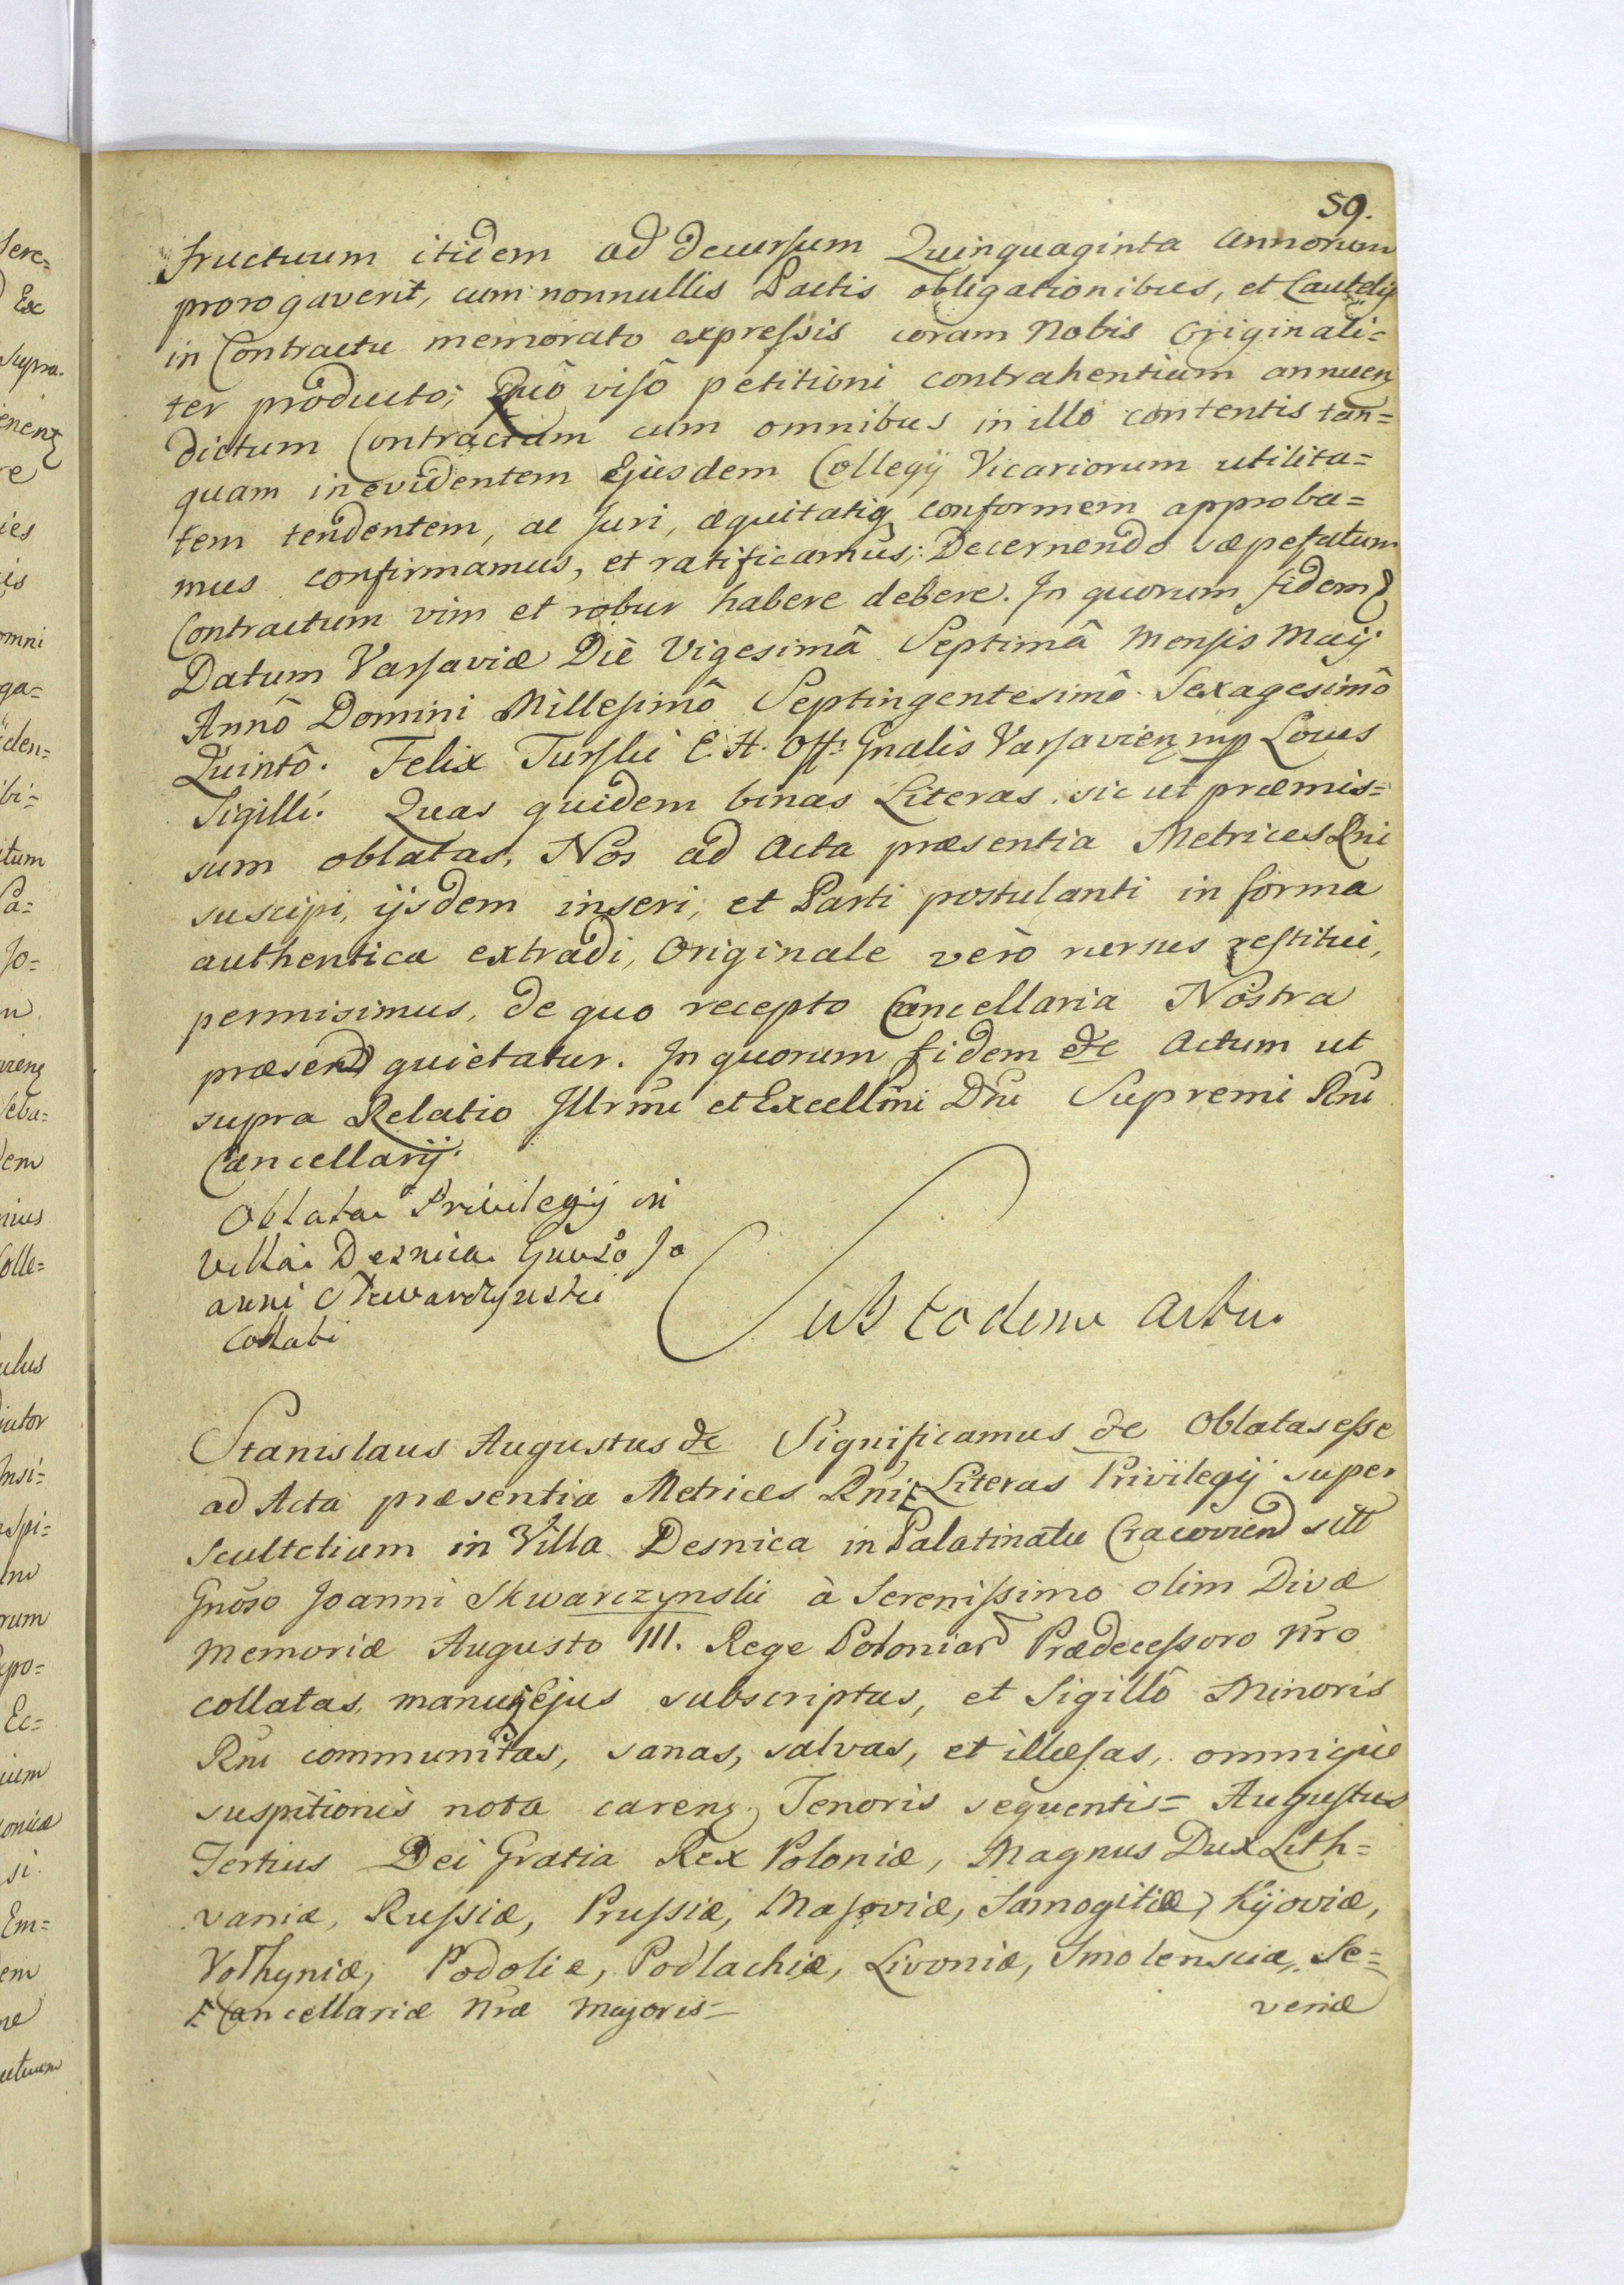 59.
fructuum itidem ad decursum Quinquaginta Annorum
prorogaverit, cum nonnullis Pactis obligationibus, et Cautelis
in Contractu memorato expressis coram Nobis Originali=
ter producto; Quô visô petitioni contrahentium annuen
dictum Contractum cum omnibus in illo contentis tan=
quam in evidentem Ejusdem Collegij Vicariorum utilita=
tem tendentem, ac Juri, æquitatiq conformem approba=
mus confirmamus, et ratificamus; Decernendo sæpefatum
Contractum vim et robur habere debere. In quorum fidem
Datum Varsaviæ Diê Vigesimâ Septimâ Mensis Maij
Annô Domini Millesimô Septingentesimô Sexagesimô
Quintô. Felix Turski E. H. Off: Gnalis Varsavien mp Locus
Sigilli. Quas quidem binas Literas sic ut præmis=
sum oblatas, Nos ad Acta præsentia Metrices Rni
suscipi, ijsdem inseri, et Parti postulanti in forma
authentica extradi, Originale verò rursus restitui,
permisimus, de quo recepto Cancellaria Nostra
præsen quietatur. In quorum fidem &c Actum ut
supra Relatio Illrmi et Excellmi Dni Supremi Rni
Cancellarij.
Oblata Privilegij in
Villa Desnica Gnoso Jo
anni Skwarczynski
Collati
Sub eodem Actu.
Stanislaus Augustus &c Significamus &c Oblatas esse
ad Acta præsentia Metrices Rni Literas Privilegij super
Scultetiam in Villa Desnica in Palatinatu Cracovien sitt
Gnoso Joanni Skwarczynski à Serenissimo olim Divæ
Memoriæ Augusto III. Rege Poloniar Prædecessoro nro
collatas, manuq Ejus subscriptas, et Sigillô Minoris
Rni communitas, sanas, salvas, et illæsas, omnique
suspitionis nota caren, Tenoris sequentis= Augustus
Tertius Dei Gratia Rex Poloniæ, Magnus Dux Lith=
vaniæ, Russiæ, Prussiæ, Masoviæ, Samogitiæ, Kijoviæ,
Volhyniæ, Podoliæ, Podlachiæ, Livoniæ, Smolensciæ, Se=
Cancellariæ nræ Majoris=
veriæ